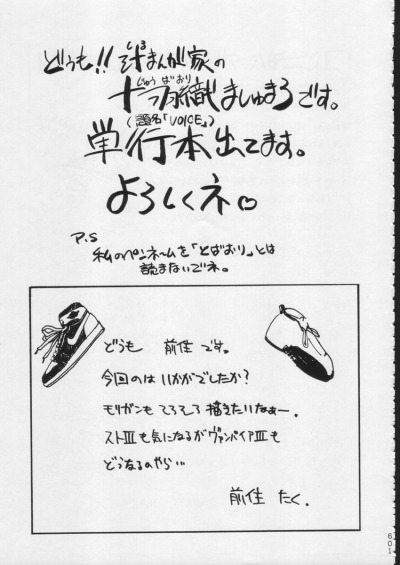 どうも!! 汁まんが家の
じる
十羽織ましゅまろです。
じゅう ばおり
(題名「VOICE」)
単行本出てます。
よろしくネ♡
P.S
私のペンネームを「とばおり」とは
読まないでネ。
どうも 前住 です。
今回のは いかがでしたか?
モリガンもそろそろ描きたいなぁー。
ストⅢも気になるがヴァンパイアⅢも
どうなるのやら…
前住 たく.
601